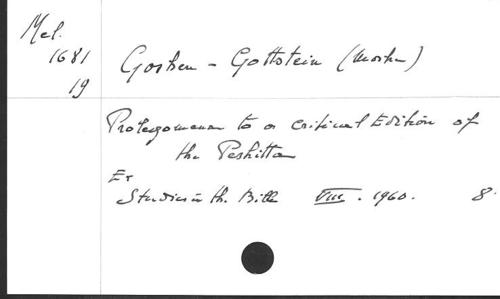 Mel.
1681
19
Goshen - Gottstein (Moshe)
Prolegomena to a critical Edition of
the Peshitta
Ex
Studies in th. Bible VIII. 1960. 8.